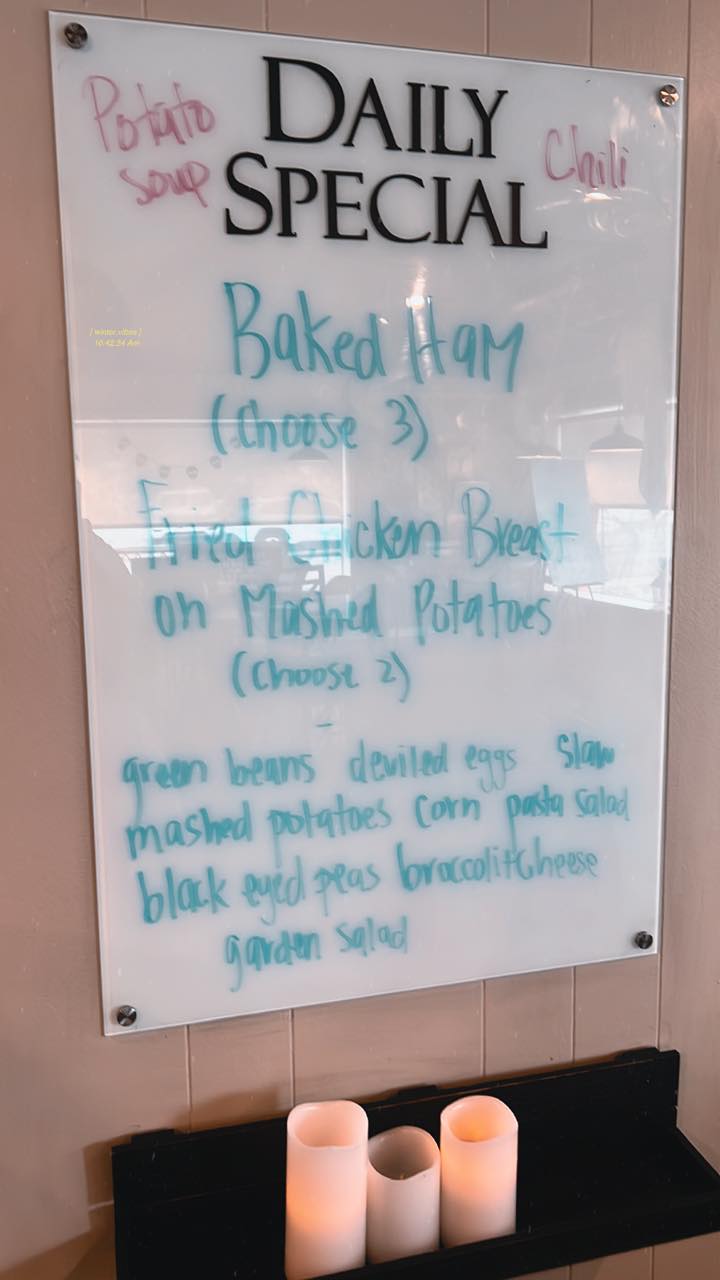 Potato
soup
DAILY
SPECIAL
Chili
Baked Ham
(Choose 3)
[ winter.vibes ]
10:42:34 AM
Fried Chicken Breast
on Mashed Potatoes
(Choose 2)
-
green beans deviled eggs slaw
mashed potatoes corn pasta salad
black eyed peas broccoli+cheese
garden salad